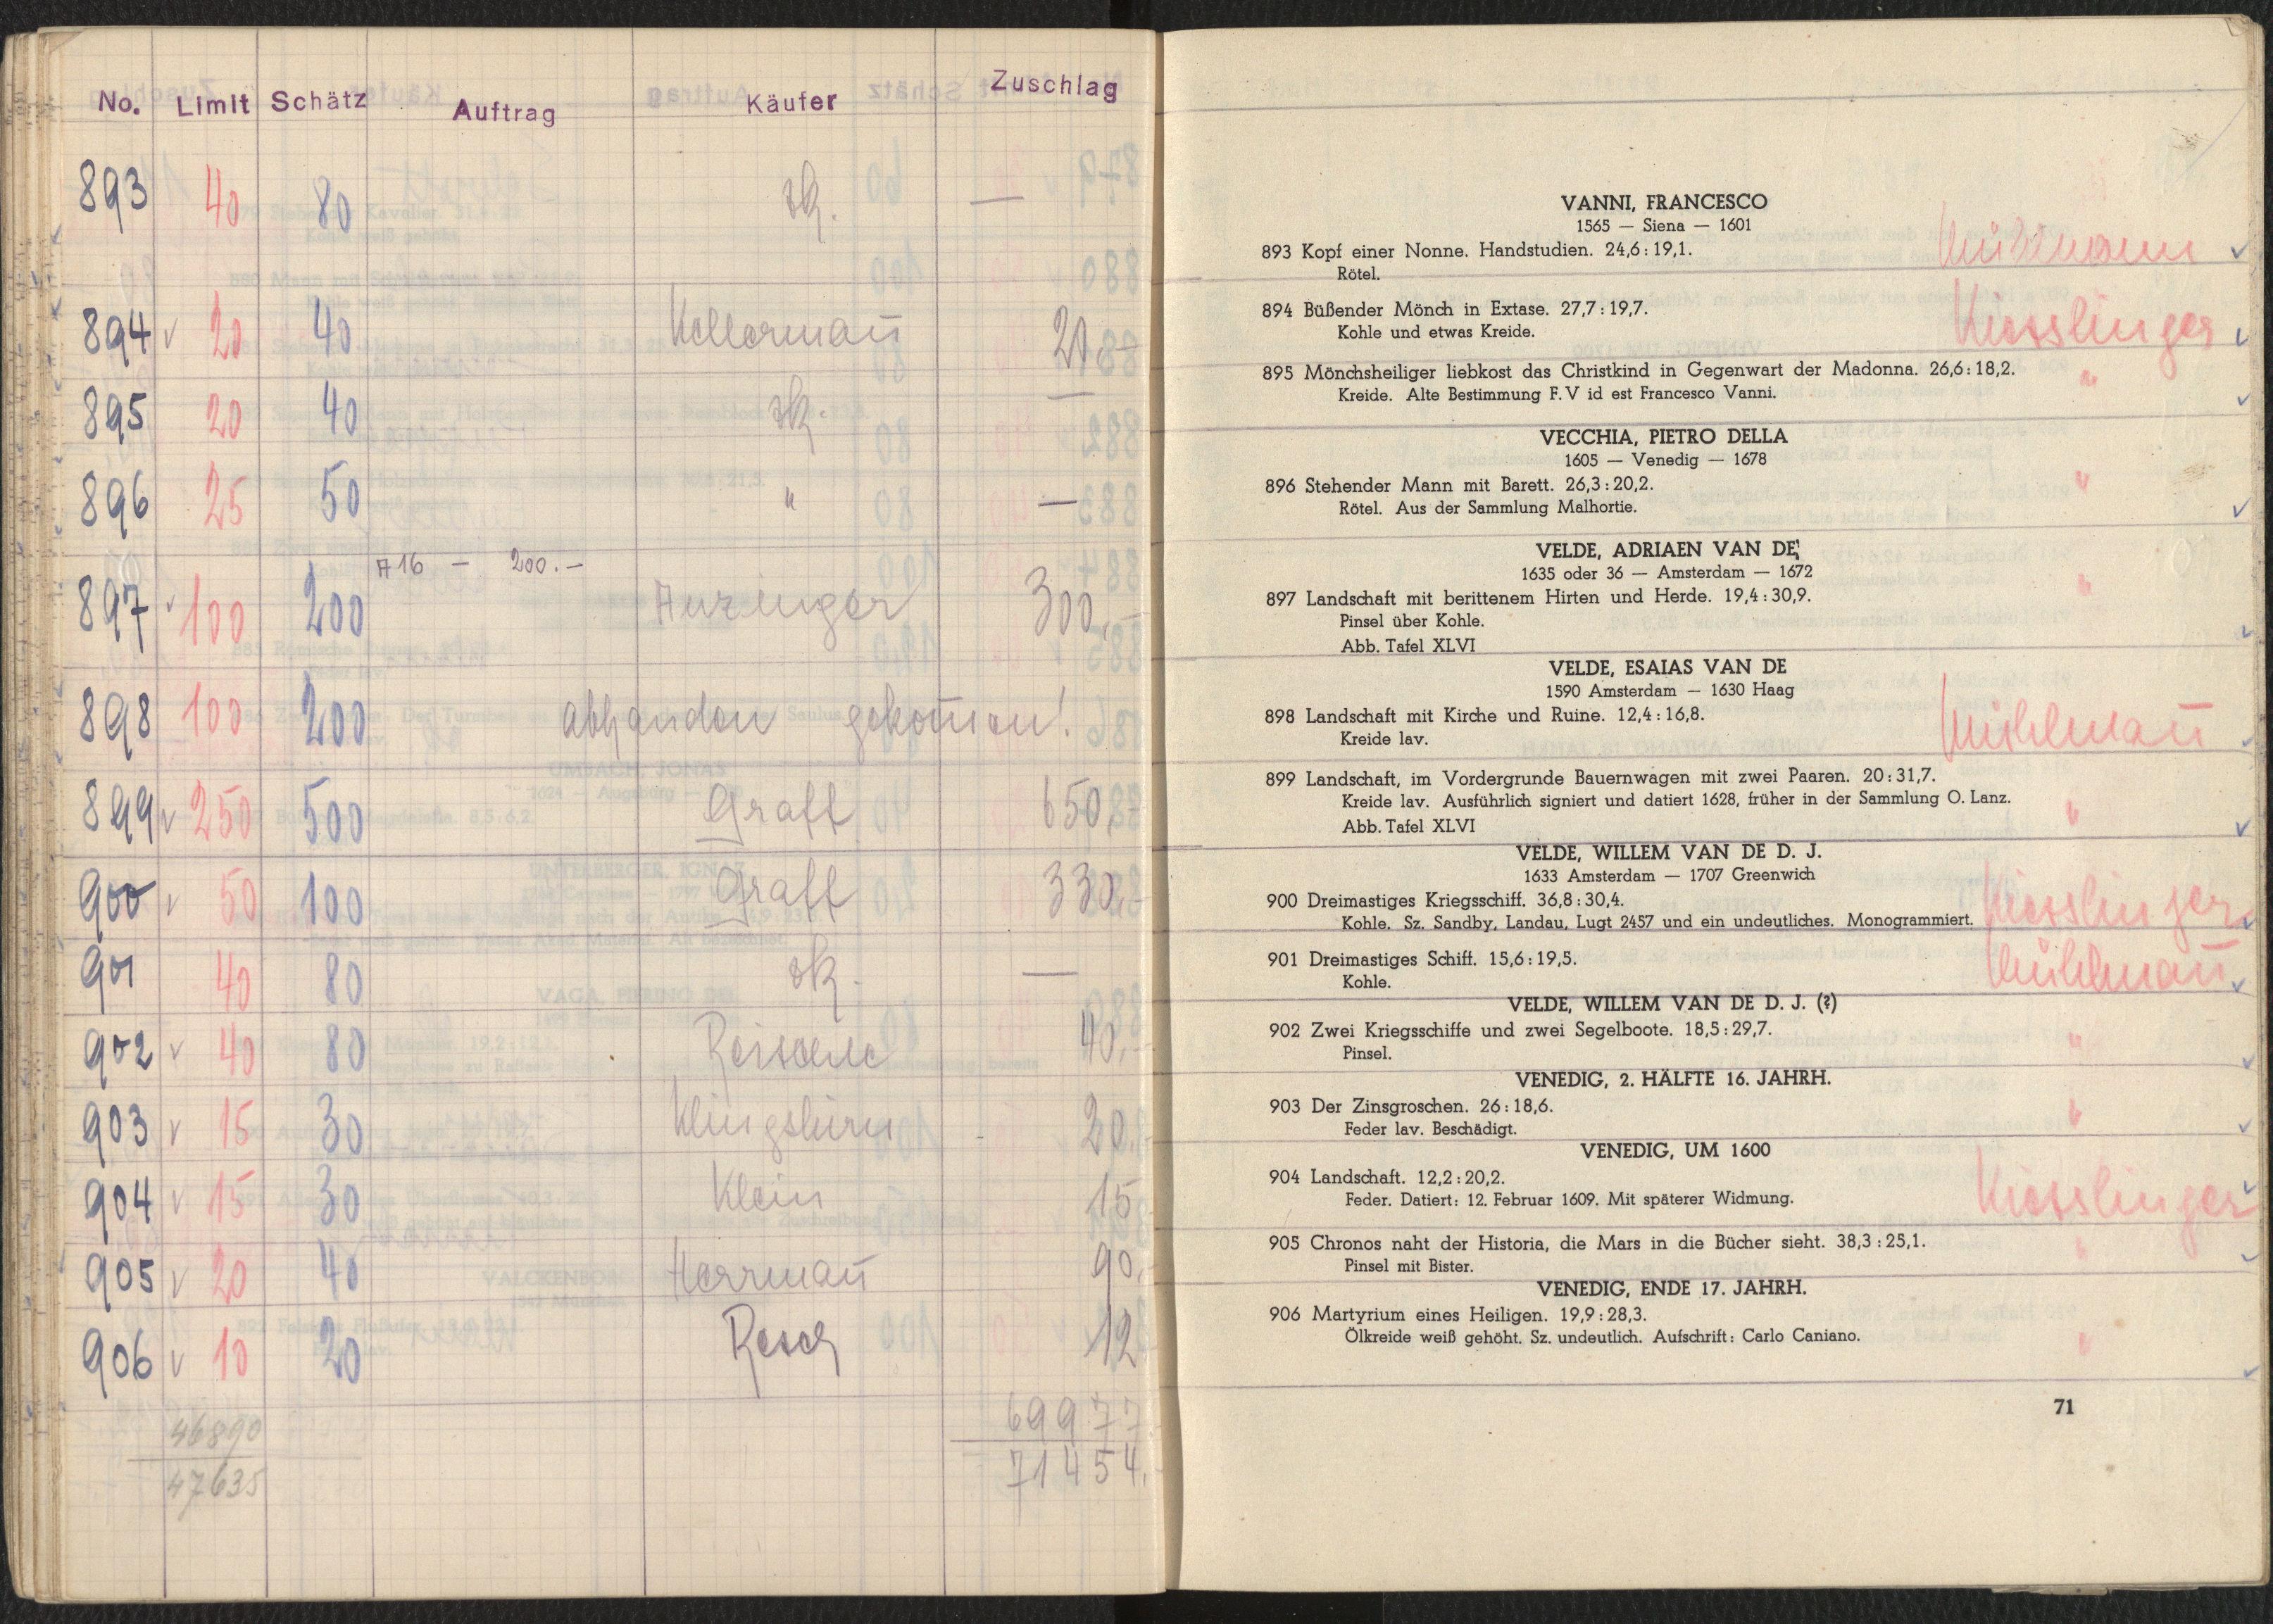 No. Limit Schätz Auftrag Käufer Zuschlag
893 40 80 —
894 v 20 40 Kellermañ 20,-
895 20 40 —
896 25 50 " —
A 16 — 200.-
897 v 100 200 Anzinger 300,-
898 100 200 abhanden gekom̄en!
899 v 250 500 Graff 650,-
900 v 50 100 Graff 330,-
901 40 80 —
902 v 40 80 40,-
903 v 15 30 Klingshirn 20,-
904 v 15 30 Klein 15
905 v 20 40 Herrmañ 90,-
906 v 10 20 Resch 12
46890 69977
47635 71454.
VANNI, FRANCESCO
1565 — Siena — 1601
893 Kopf einer Nonne. Handstudien. 24,6 : 19,1. Mühlmann
Rötel.
894 Büßender Mönch in Extase. 27,7 : 19,7. Kiesslinger
Kohle und etwas Kreide.
895 Mönchsheiliger liebkost das Christkind in Gegenwart der Madonna. 26,6 : 18,2. "
Kreide. Alte Bestimmung F. V id est Francesco Vanni.
VECCHIA, PIETRO DELLA
1605 — Venedig — 1678
896 Stehender Mann mit Barett. 26,3 : 20,2. "
Rötel. Aus der Sammlung Malhortie.
VELDE, ADRIAEN VAN DE
1635 oder 36 — Amsterdam — 1672
897 Landschaft mit berittenem Hirten und Herde. 19,4 : 30,9. "
Pinsel über Kohle.
Abb. Tafel XLVI
VELDE, ESAIAS VAN DE
1590 Amsterdam — 1630 Haag
898 Landschaft mit Kirche und Ruine. 12,4 : 16,8. Mühlmañ
Kreide lav.
899 Landschaft, im Vordergrunde Bauernwagen mit zwei Paaren. 20 : 31,7.
Kreide lav. Ausführlich signiert und datiert 1628, früher in der Sammlung O. Lanz. "
Abb. Tafel XLVI
VELDE, WILLEM VAN DE D. J.
1633 Amsterdam — 1707 Greenwich
900 Dreimastiges Kriegsschiff. 36,8 : 30,4. Kiesslinger
Kohle. Sz. Sandby, Landau, Lugt 2457 und ein undeutliches. Monogrammiert.
901 Dreimastiges Schiff. 15,6 : 19,5. Mühlmañ
Kohle.
VELDE, WILLEM VAN DE D. J. (?)
902 Zwei Kriegsschiffe und zwei Segelboote. 18,5 : 29,7. "
Pinsel.
VENEDIG, 2. HÄLFTE 16. JAHRH.
903 Der Zinsgroschen. 26 : 18,6. "
Feder lav. Beschädigt.
VENEDIG, UM 1600
904 Landschaft. 12,2 : 20,2. Kiesslinger
Feder. Datiert: 12. Februar 1609. Mit späterer Widmung.
905 Chronos naht der Historia, die Mars in die Bücher sieht. 38,3 : 25,1. "
Pinsel mit Bister.
VENEDIG, ENDE 17. JAHRH.
906 Martyrium eines Heiligen. 19,9 : 28,3.
Ölkreide weiß gehöht. Sz. undeutlich. Aufschrift: Carlo Caniano. "
71